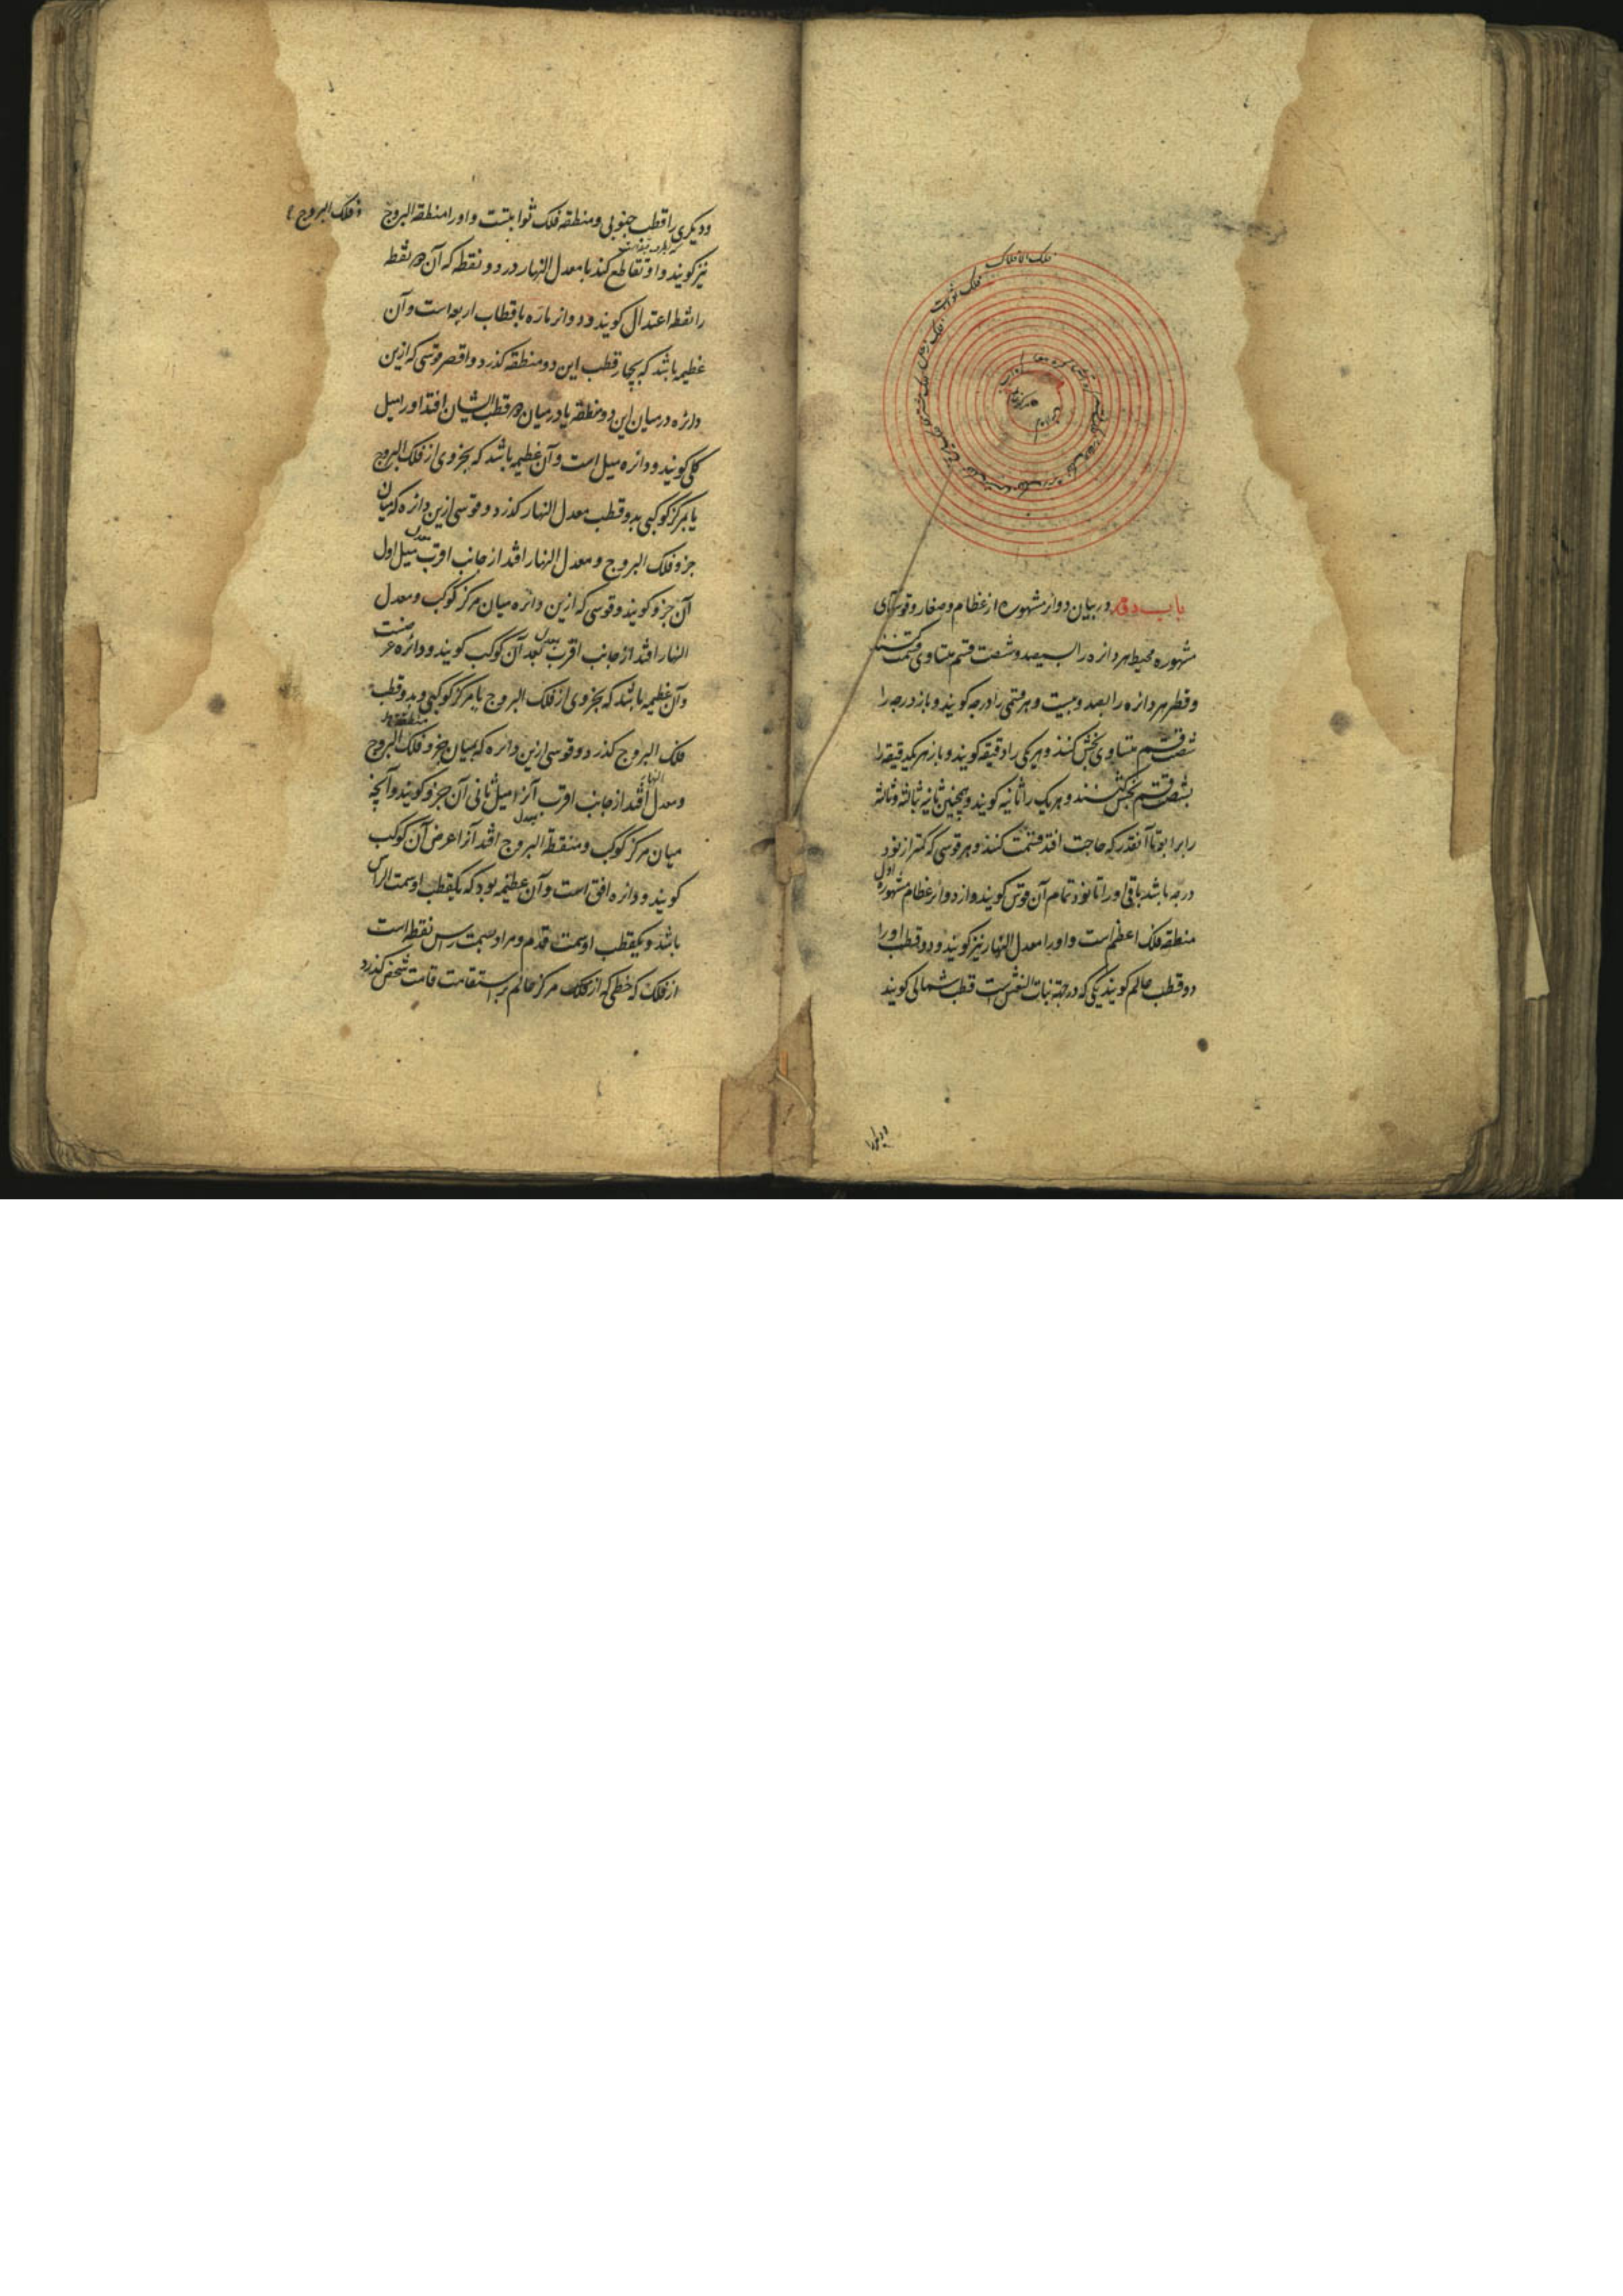 فلک الافلاک
فلک ثوابت
فلک زحل
فلک مشتری
مرکز عالم
باب دوم در بیان دوایر مشهوره از عظام و صغار و قوسهای
مشهوره محیط هر دائره را بسیصد و شصت قسم متساوی قسمت کنند
و قطر هر دائره را بصد و بیست و هر قسمی را درجه کویند و باز درجه را
شصت قسم متساوی بخش کنند و هر یکی را دقیقه کویند و باز هر یکدقیقه را
بشصت قسم بخش کنند و هر یک را ثانیه کویند و همچنین ثانیه ثالثه و ثالثه
رابرا بوتا آنقدر که حاجت افتد قسمت کنند و هر قوسی که کمتر از نود
درجه باشد باقی اورا تا نود تمام آن قوس کویند و از دوائر عظام مشهوره اول
منطقه فلک اعظم است و اورا معدل النهار نیز کویند و دو قطب اورا
دو قطب عالم کویند یکی که در جهة بنات النعش است قطب شمالی کویند
و دیکری را
و دیکری را قطب جنوبی و منطقه فلک ثوابتست و اورا منطقة البروج و فلک البروج
نیز کویند و او تقاطع کند با معدل النهار در دو نقطه که آن دو نقطه
را نقطه اعتدال کویند و دوائر ماره باقطاب اربعه است و آن
عظیمه باشد که بچار قطب این دو منطقه کذرد و اقصر قوسی که ازین
دائره درمیان این دو منطقه یا درمیان دو قطب ایشان افتد اورا میل
کلی کویند و دائره میل است و آن عظیمه باشد که بجزوی از فلک البروج
یا بمرکز کوکبی بدو قطب معدل النهار کذرد و قوسی ازین دائره که میان
جزو فلک البروج و معدل النهار افتد از جانب اقرب معدل میل اول
آن جزو کویند و قوسی که ازین دائره میان مرکز کوکب و معدل
النهار افتد از جانب اقرب بعدل بعد آن کوکب کویند و دائره عرضست
و آن عظیمه باشد که بجزوی از فلک البروج یا بمرکز کوکبی و بدو قطب
فلک البروج کذرد و قوسی ازین دائره که میان جزو فلک البروج
و معدل النهار افتد از جانب اقرب آنرا میل ثانی آن جزو کویند و آنچه
میان مرکز کوکب و منطقة البروج افتد آنرا عرض آن کوکب
کویند و دائره افق است و آن عظیمه بود که یکقطب او سمت الراس
باشد و یکقطب او سمت قدم و مراد بسمت راس نقطه است
از فلک که خطی که از مرکز عالم بر استقامت قامت شخص کذرد